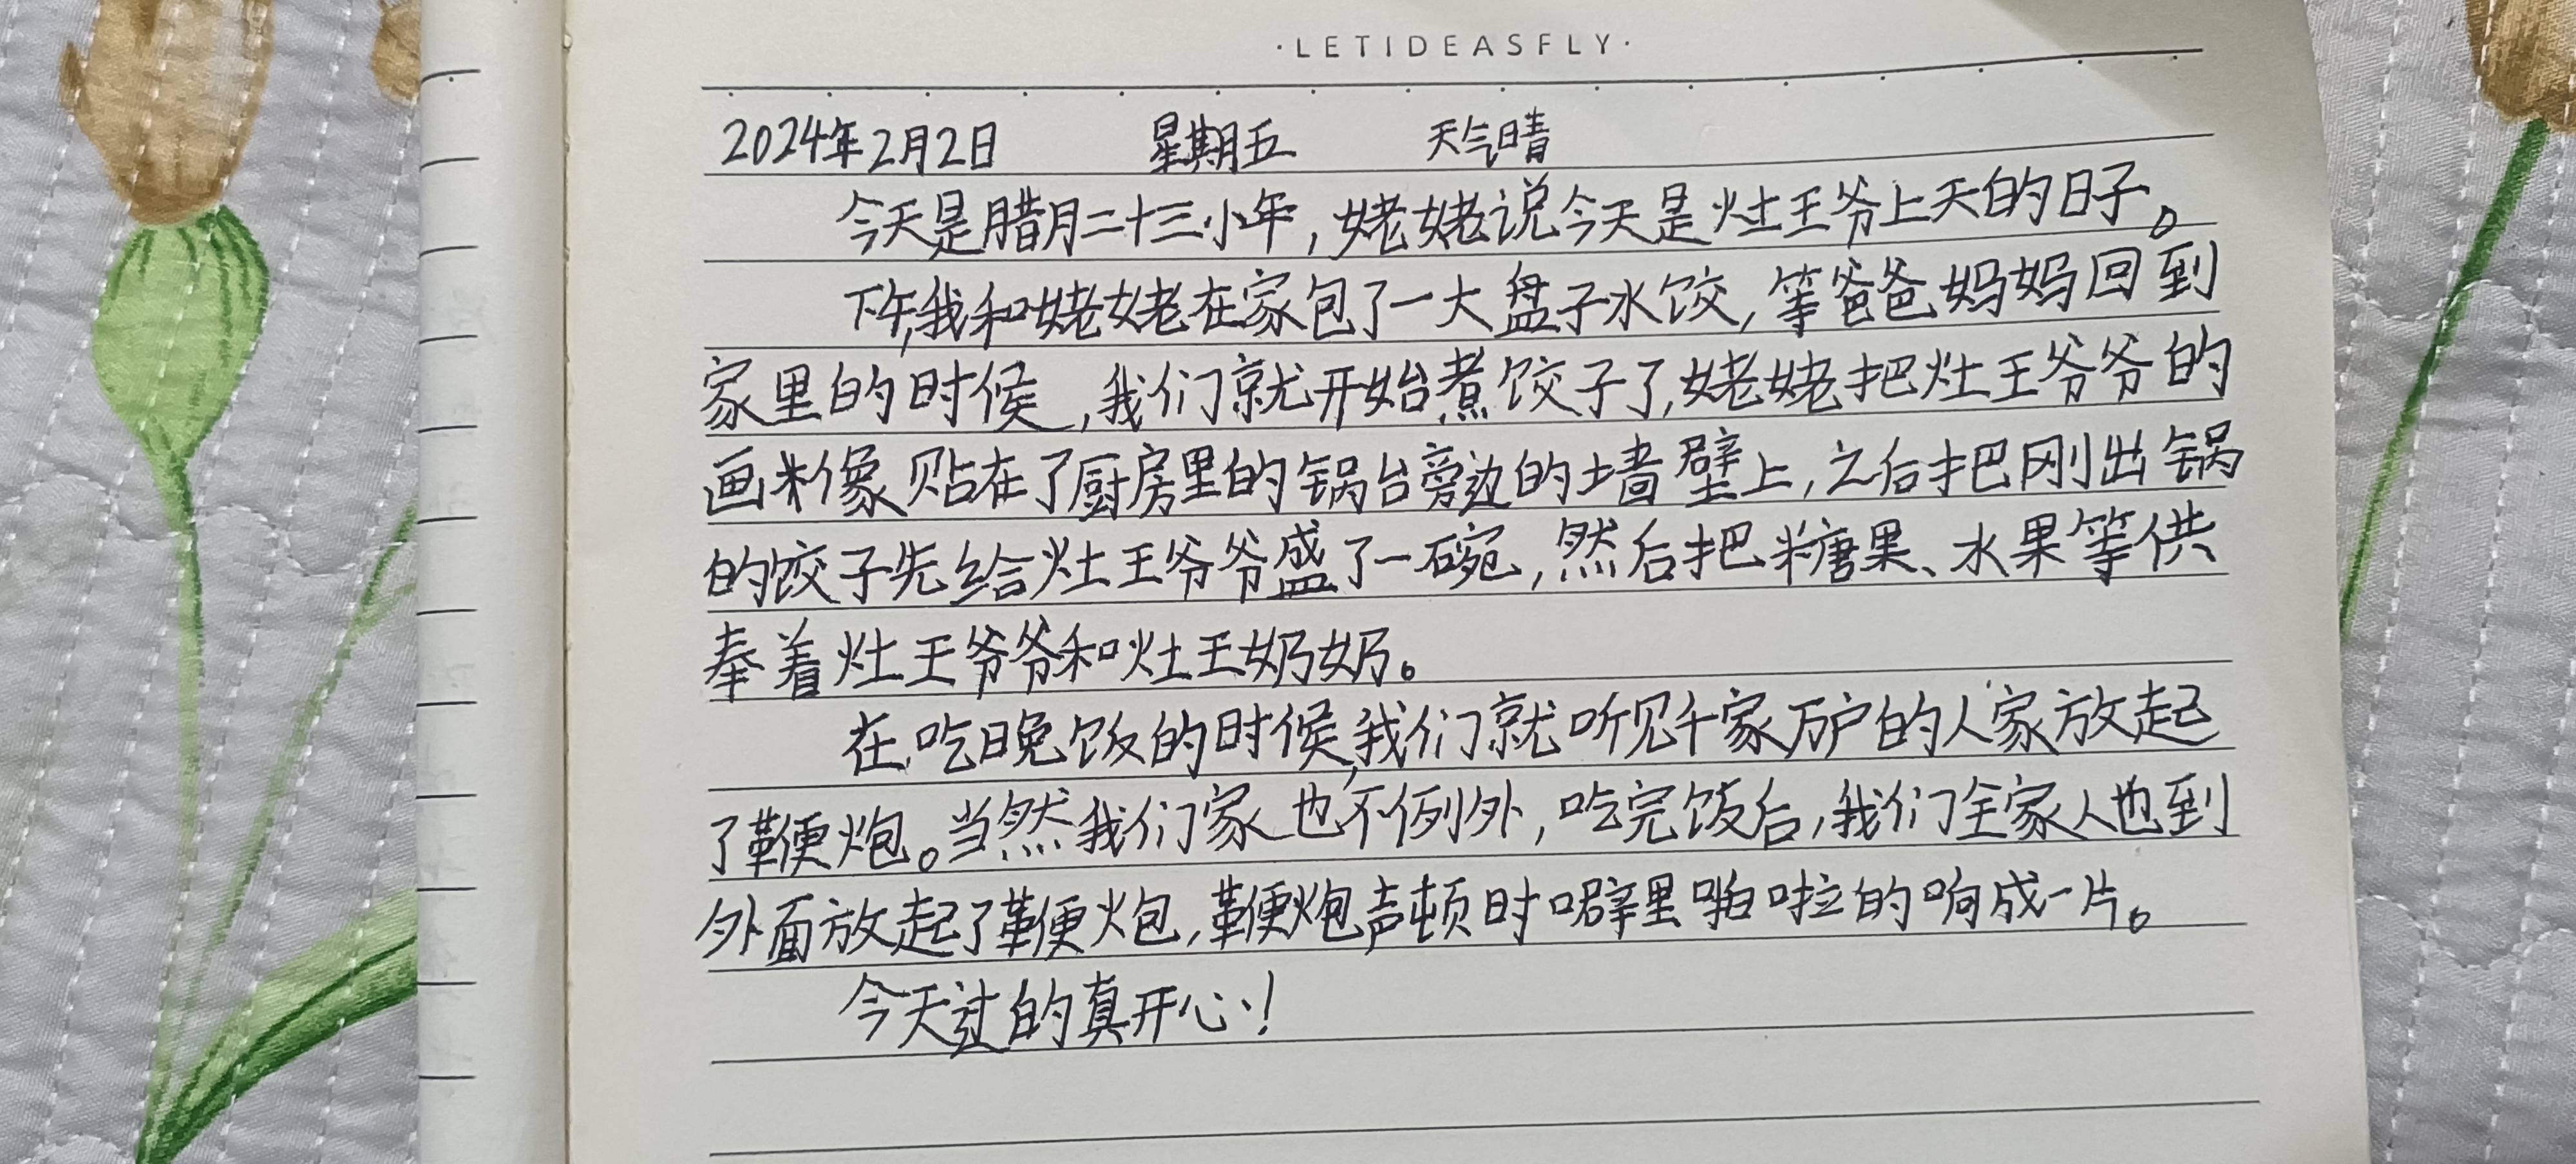 ·LETIDEASFLY·
2024年2月2日 星期五 天气晴
今天是腊月二十三小年，姥姥说今天是灶王爷上天的日子。
下午，我和姥姥在家包了一大盘子水饺，等爸爸妈妈回到
家里的时候，我们就开始煮饺子了，姥姥把灶王爷爷的
画像贴在了厨房里的锅台旁边的墙壁上，之后把刚出锅
的饺子先给灶王爷爷盛了一碗，然后把糖果、水果等供
奉着灶王爷爷和灶王奶奶。
在吃晚饭的时候，我们就听见千家万户的人家放起
了鞭炮。当然我们家也不例外，吃完饭后，我们全家人也到
外面放起了鞭炮，鞭炮声顿时噼里啪啦的响成一片。
今天过的真开心！